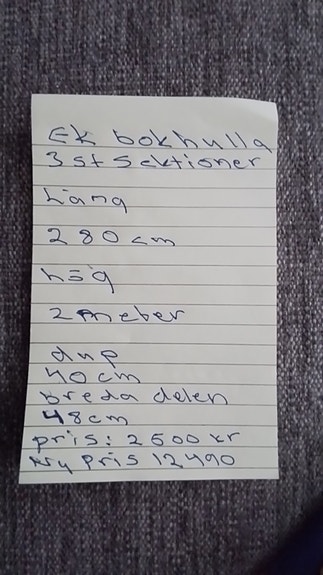 Ek bokhulla
3 st Sektioner
Läng
280 cm
hög
2 meber
dup
40 cm
breda delen
48 cm
pris: 2500 kr
Ny Pris 12490